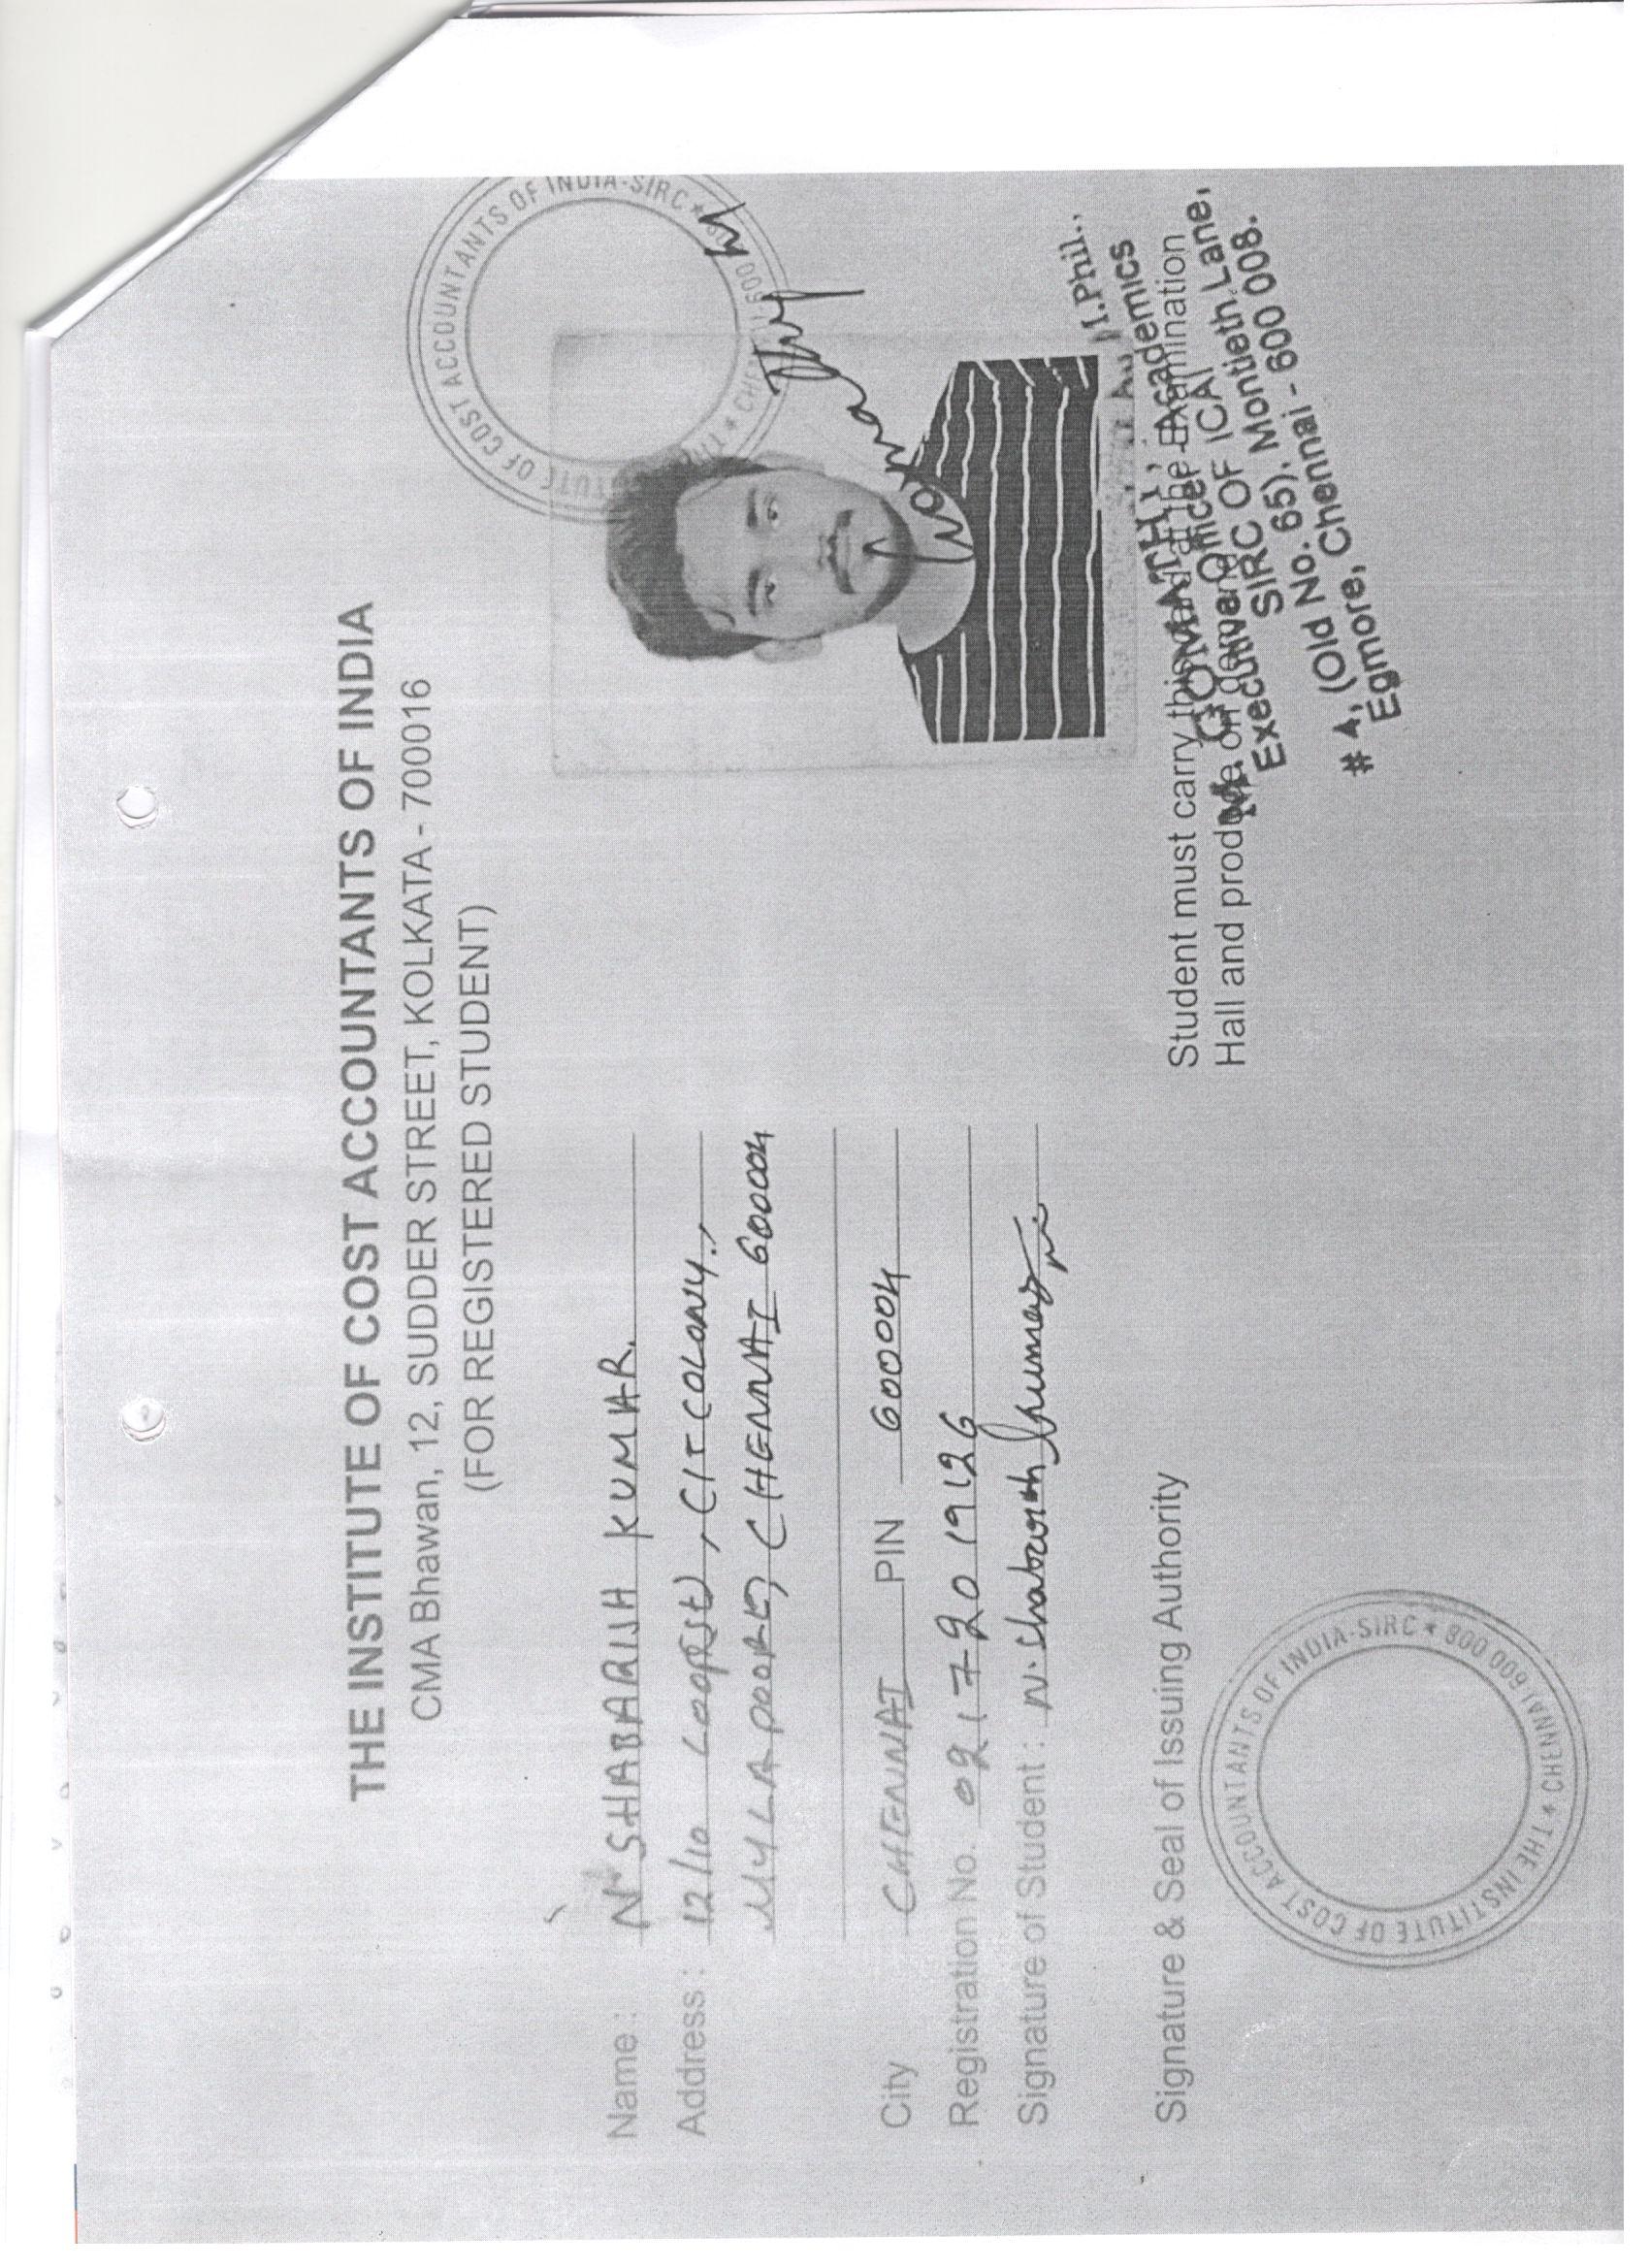 THE INSTITUTE OF COST ACCOUNTANTS OF INDIA
CMA Bhawan, 12, SUDDER STREET, KOLKATA - 700016
(FOR REGISTERED STUDENT)
Name : N SHABARISH KUMAR.
Address : 12/10 , CIT COLONY.,
MYLAPORE, CHENNAI 600004
City CHENNAI PIN 600004
Registration No.
Signature of Student : N. Shabarish Kumar
Signature & Seal of Issuing Authority
THE INSTITUTE OF COST ACCOUNTANTS OF INDIA-SIRC * CHENNAI 600 008 *
INSTITUTE OF COST ACCOUNTANTS OF INDIA-SIRC *
Student must carry this card at the Examination
Hall and produce on demand
M. GOMATHI, M.Phil.,
Executive Officer Academics
SIRC OF ICAI
# 4, (Old No. 65), Montieth Lane,
Egmore, Chennai - 600 008.